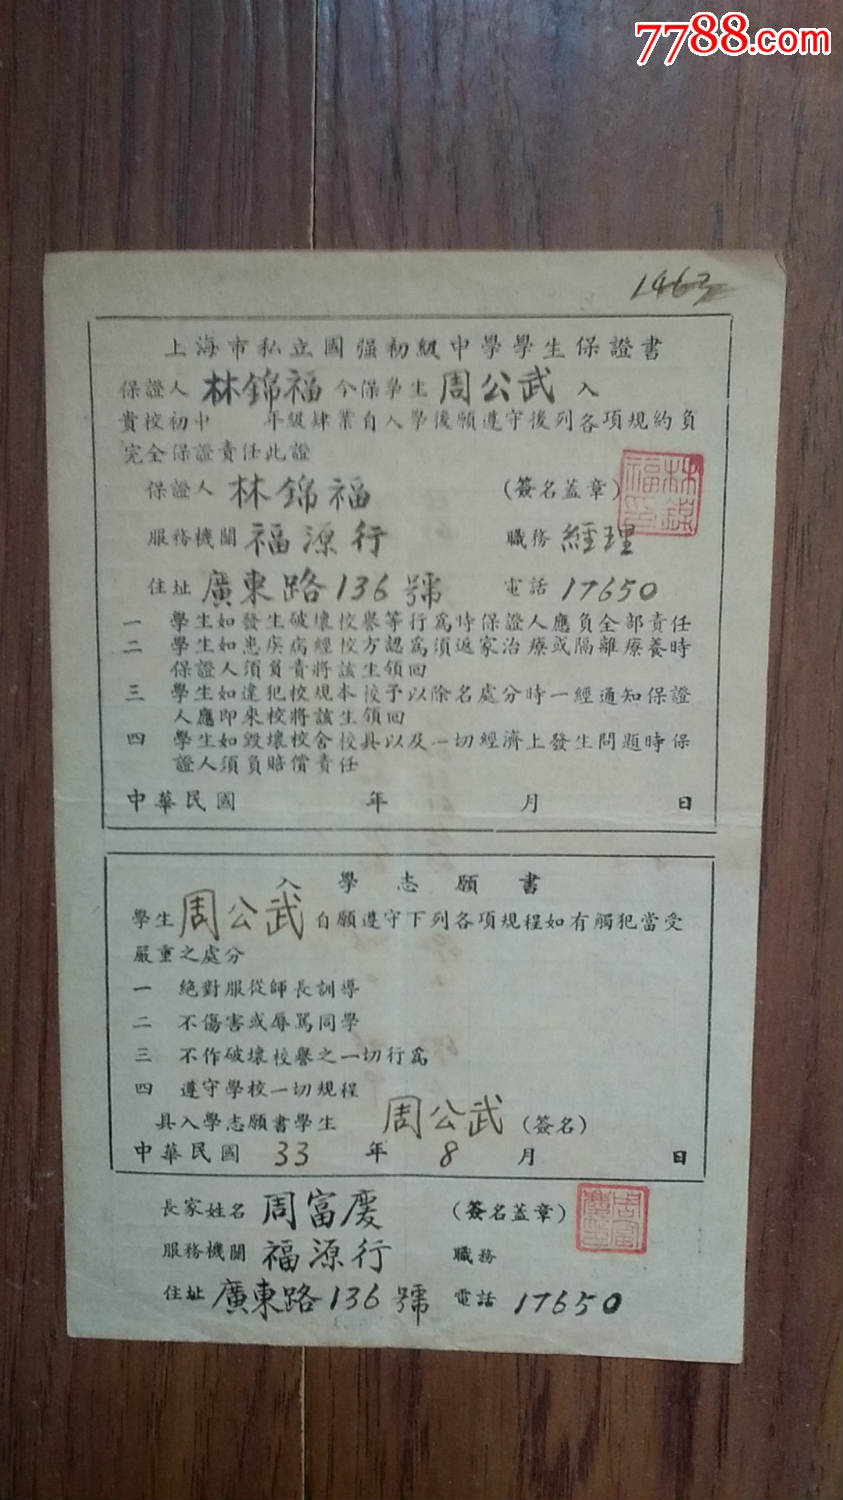 7788.com
1463
上海市私立國强初級中學學生保證書
保證人 林錦福 今保學生 周公武 入
貴校初中 年級肄業自入學後願遵守後列各項規約負
完全保證責任此證
保證人 林錦福 (簽名蓋章)
服務機關 福源行 職務 經理
住址 廣東路136號 電話 17650
一 學生如發生破壞校譽等行爲時保證人應負全部責任
二 學生如患疾病經校方認爲須返家治療或隔離療養時
保證人須負責將該生領回
三 學生如違犯校規本校予以除名處分時一經通知保證
人應即來校將該生領回
四 學生如毀壞校舍校具以及一切經濟上發生問題時保
證人須負賠償責任
中華民國 年 月 日
入學志願書
學生 周公武 自願遵守下列各項規程如有觸犯當受
嚴重之處分
一 絕對服從師長訓導
二 不傷害或辱罵同學
三 不作破壞校譽之一切行爲
四 遵守學校一切規程
具入學志願書學生 周公武 (簽名)
中華民國 33 年 8 月 日
長家姓名 周富慶 (簽名蓋章)
服務機關 福源行 職務
住址 廣東路136號 電話 17650